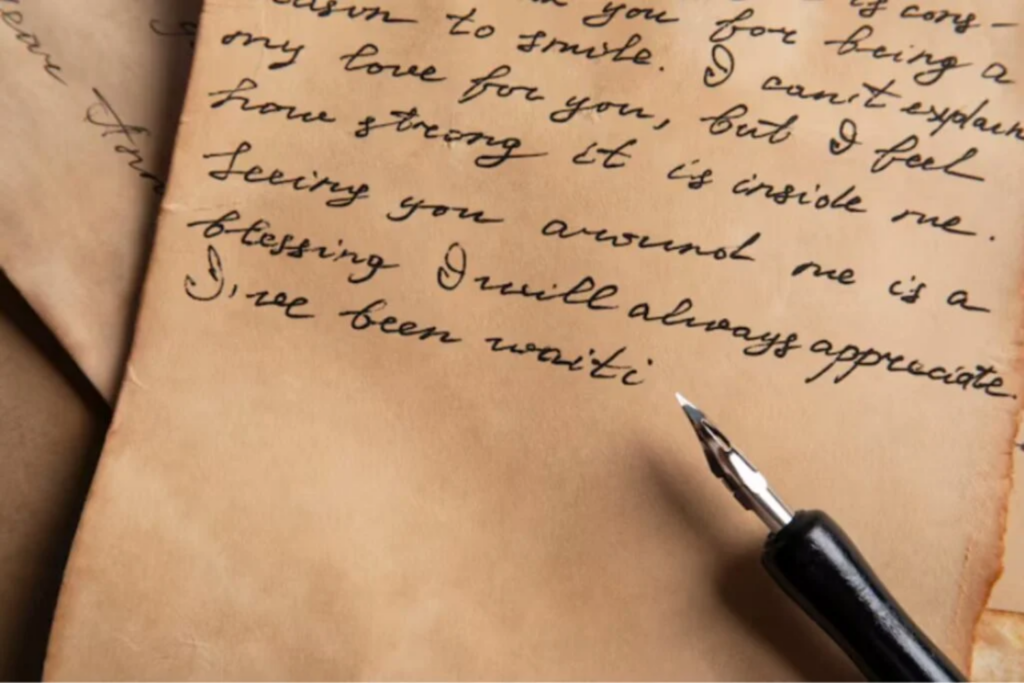 is cons-
you for being a
to smile. I can't explain
my love for you, but I feel
how strong it is inside me.
Seeing you around me is a
blessing I will always appreciate.
I've been waiti